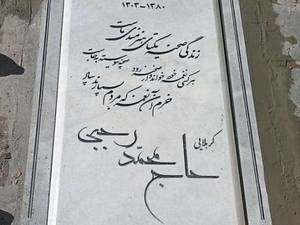 ۱۳۰۳-۱۳۸۰
زندگی صحنه یکتای هنرمندی ماست
هر کسی نغمه خود خواند و از صحنه رود
صحنه پیوسته بجاست
خرم آن نغمه که مردم بسپارند بیاد
کربلایی
حاج محمد رجبی